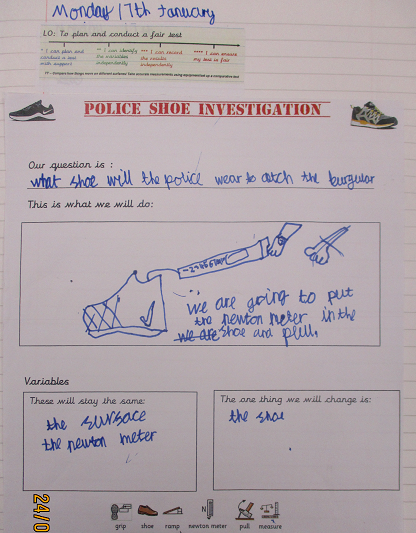 Monday 17th January
LO: To plan and conduct a fair test
* I can plan and ** I can identify *** I can record **** I can ensure
conduct a test the variables the results my test is fair
with support independently independently
POLICE SHOE INVESTIGATION
Our question is :
what shoe will the police wear to catch the burgular
This is what we will do:
we are going to put
the newton meter in the
we are shoe and pull.
Variables
These will stay the same:
the sursace
the newton meter
The one thing we will change is:
the shoe
grip shoe ramp newton meter pull measure
24/0